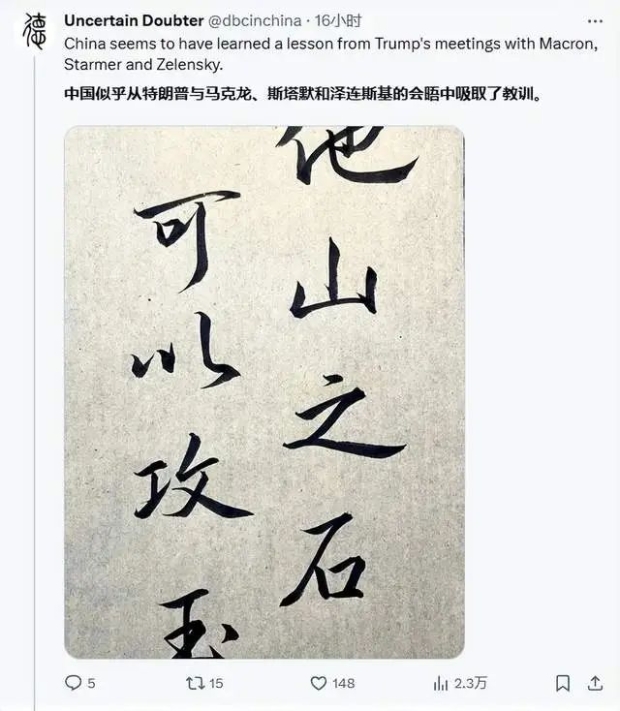 德
Uncertain Doubter @dbcinchina · 16小时
China seems to have learned a lesson from Trump's meetings with Macron,
Starmer and Zelensky.
中国似乎从特朗普与马克龙、斯塔默和泽连斯基的会晤中吸取了教训。
他山之石
可以攻玉
5 15 148 2.3万